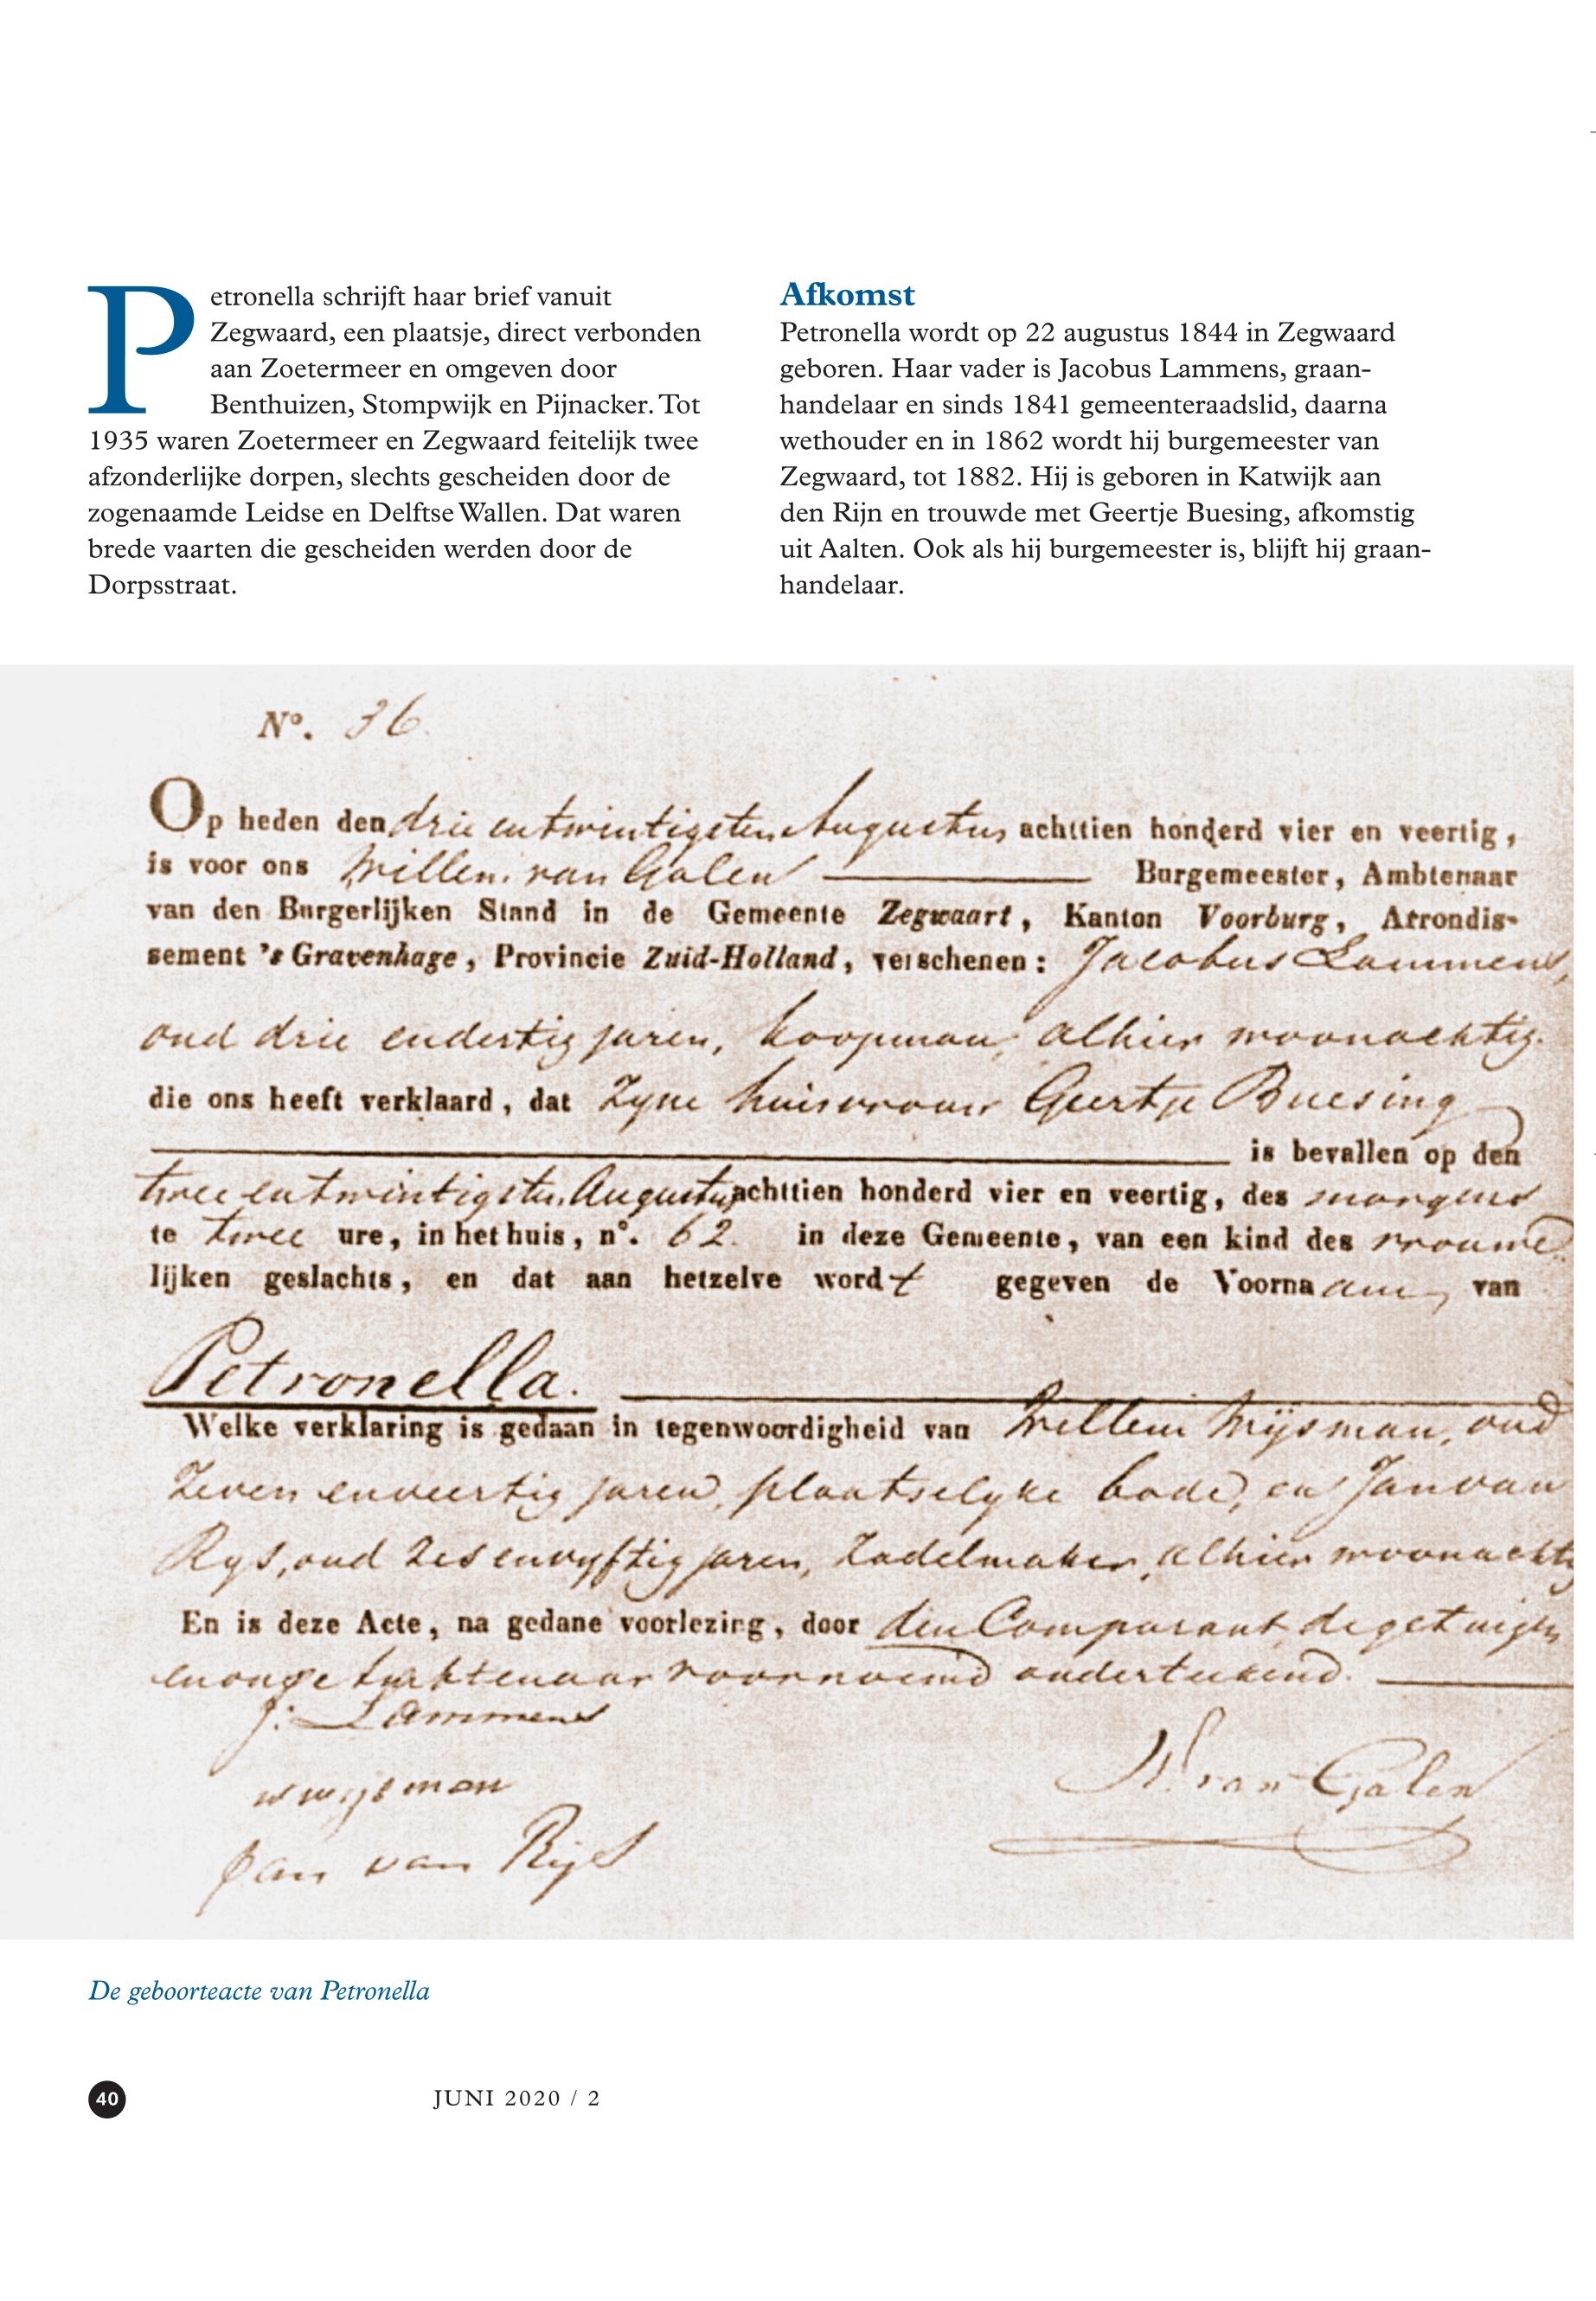 Petronella schrijft haar brief vanuit
Zegwaard, een plaatsje, direct verbonden
aan Zoetermeer en omgeven door
Benthuizen, Stompwijk en Pijnacker. Tot
1935 waren Zoetermeer en Zegwaard feitelijk twee
afzonderlijke dorpen, slechts gescheiden door de
zogenaamde Leidse en Delftse Wallen. Dat waren
brede vaarten die gescheiden werden door de
Dorpsstraat.
Afkomst
Petronella wordt op 22 augustus 1844 in Zegwaard
geboren. Haar vader is Jacobus Lammens, graan-
handelaar en sinds 1841 gemeenteraadslid, daarna
wethouder en in 1862 wordt hij burgemeester van
Zegwaard, tot 1882. Hij is geboren in Katwijk aan
den Rijn en trouwde met Geertje Buesing, afkomstig
uit Aalten. Ook als hij burgemeester is, blijft hij graan-
handelaar.
No. 36.
Op heden den drie entwintigsten Augustus achttien honderd vier en veertig,
is voor ons Willem van Galen Burgemeester, Ambtenaar
van den Burgerlijken Stand in de Gemeente Zegwaart, Kanton Voorburg, Arrondis-
sement 's Gravenhage, Provincie Zuid-Holland, verschenen: Jacobus Lammens,
oud drie endertig jaren, koopman, alhier woonachtig.
die ons heeft verklaard, dat Zyne huisvrouw Geertje Buesing
is bevallen op den
twee entwintigsten Augustus achttien honderd vier en veertig, des morgens
te twee ure, in het huis, no. 62. in deze Gemeente, van een kind des vrouwe
lijken geslachts, en dat aan hetzelve wordt gegeven de Voornaam, van
Petronella.
Welke verklaring is gedaan in tegenwoordigheid van Willem Wijsman, oud
Zeven enveertig jaren, plaatselyke bode, en Jan van
Rys, oud zes envyftig jaren, Zadelmaker, alhier woonachtig
En is deze Acte, na gedane voorlezing, door den Comparant, de getuigen
en onze Ambtenaar voornoemd ondertekend.
J: Lammens
w wijsman
Jan van Rijs
W. van Galen
De geboorteacte van Petronella
40
JUNI 2020 / 2